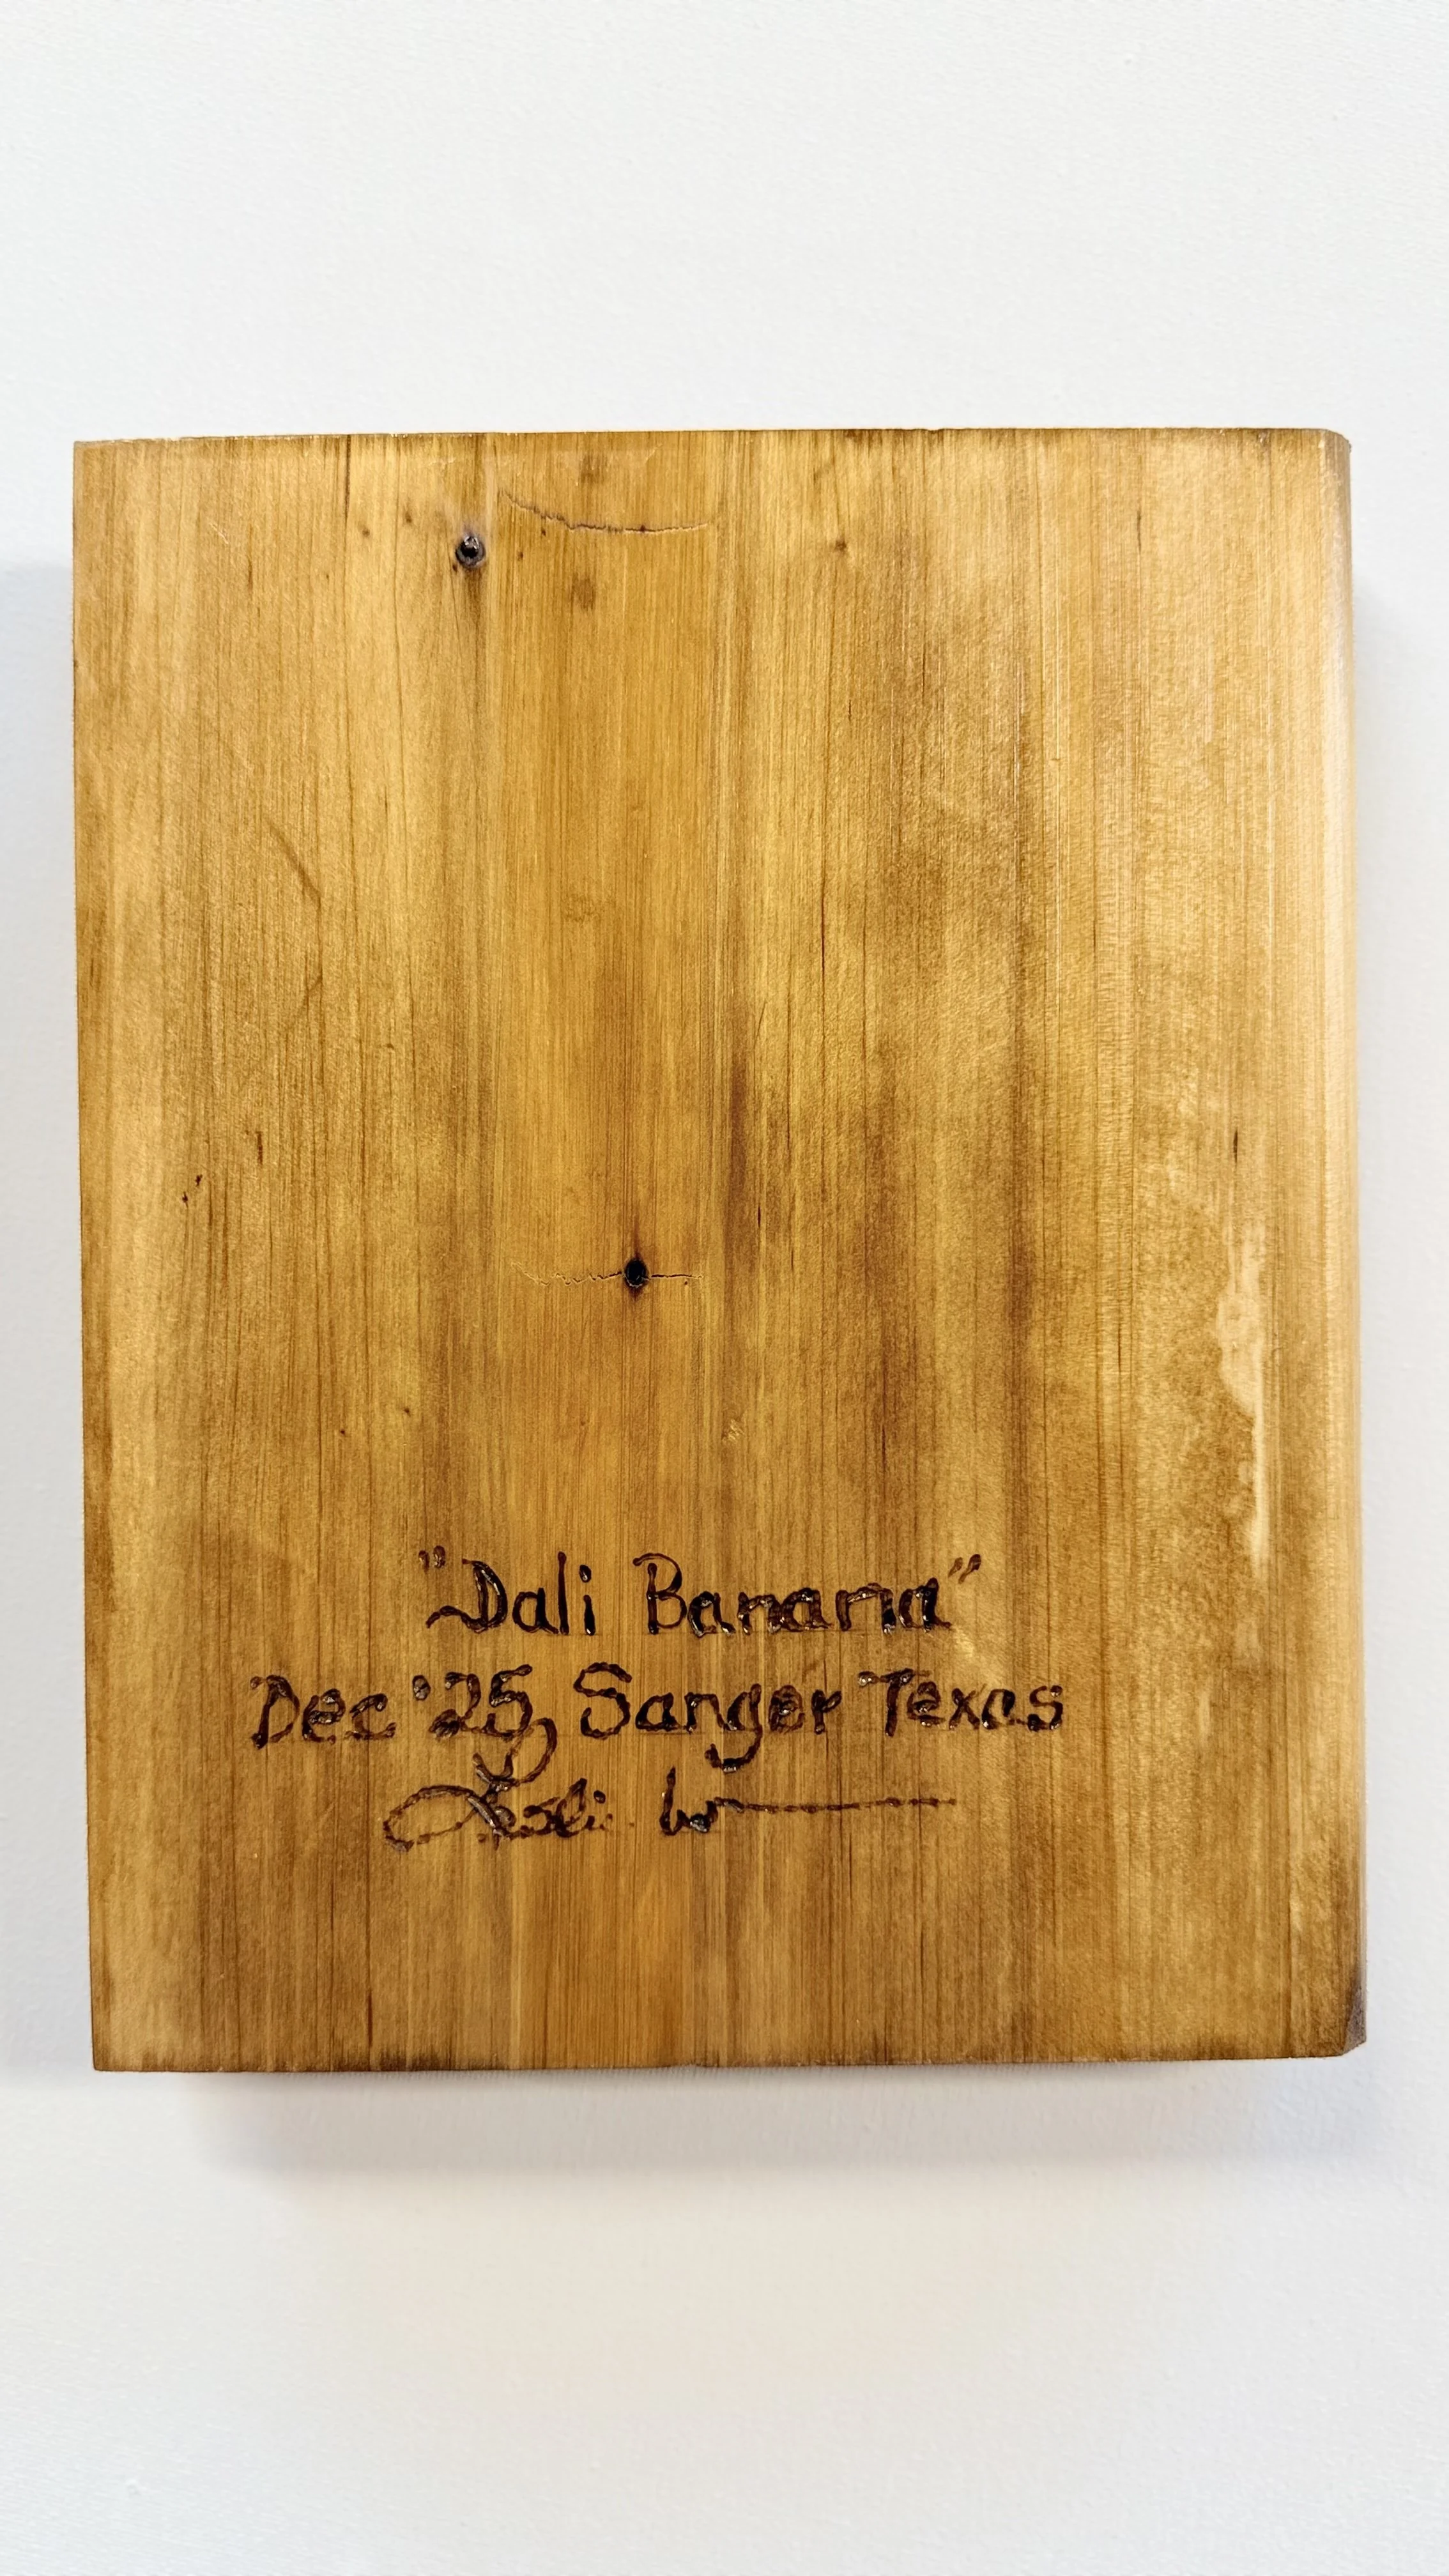 "Dali Banana"
Dec '25, Sanger Texas
Leslie